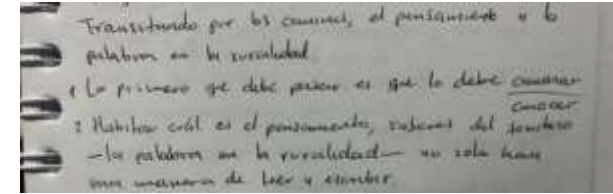 Transitando por los caminos, el pensamiento y la
palabra en la ruralidad.
1 Lo primero que debe pasar es que lo debe caminar
conocer
2 Habitar cuál es el pensamiento, saberes del
—la palabra en la ruralidad— no solo hay
una manera de leer y escribir.